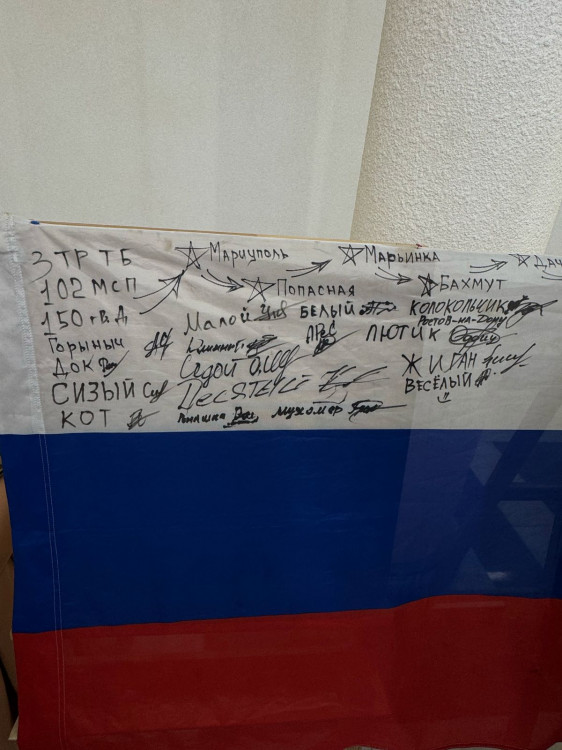 3 ТР ТБ
102 МСП
150 гв.Д
Горыныч
Док
СИЗЫЙ
КОТ
Мариуполь
Марьинка
Дач
Попасная
Бахмут
Малой
БЕЛЫЙ
КОЛОКОЛЬЧИК
Ростов-на-Дону
АРС
ЛЮТИК
Седой
ЖИГАН
ВЕСЁЛЫЙ
Мухомор